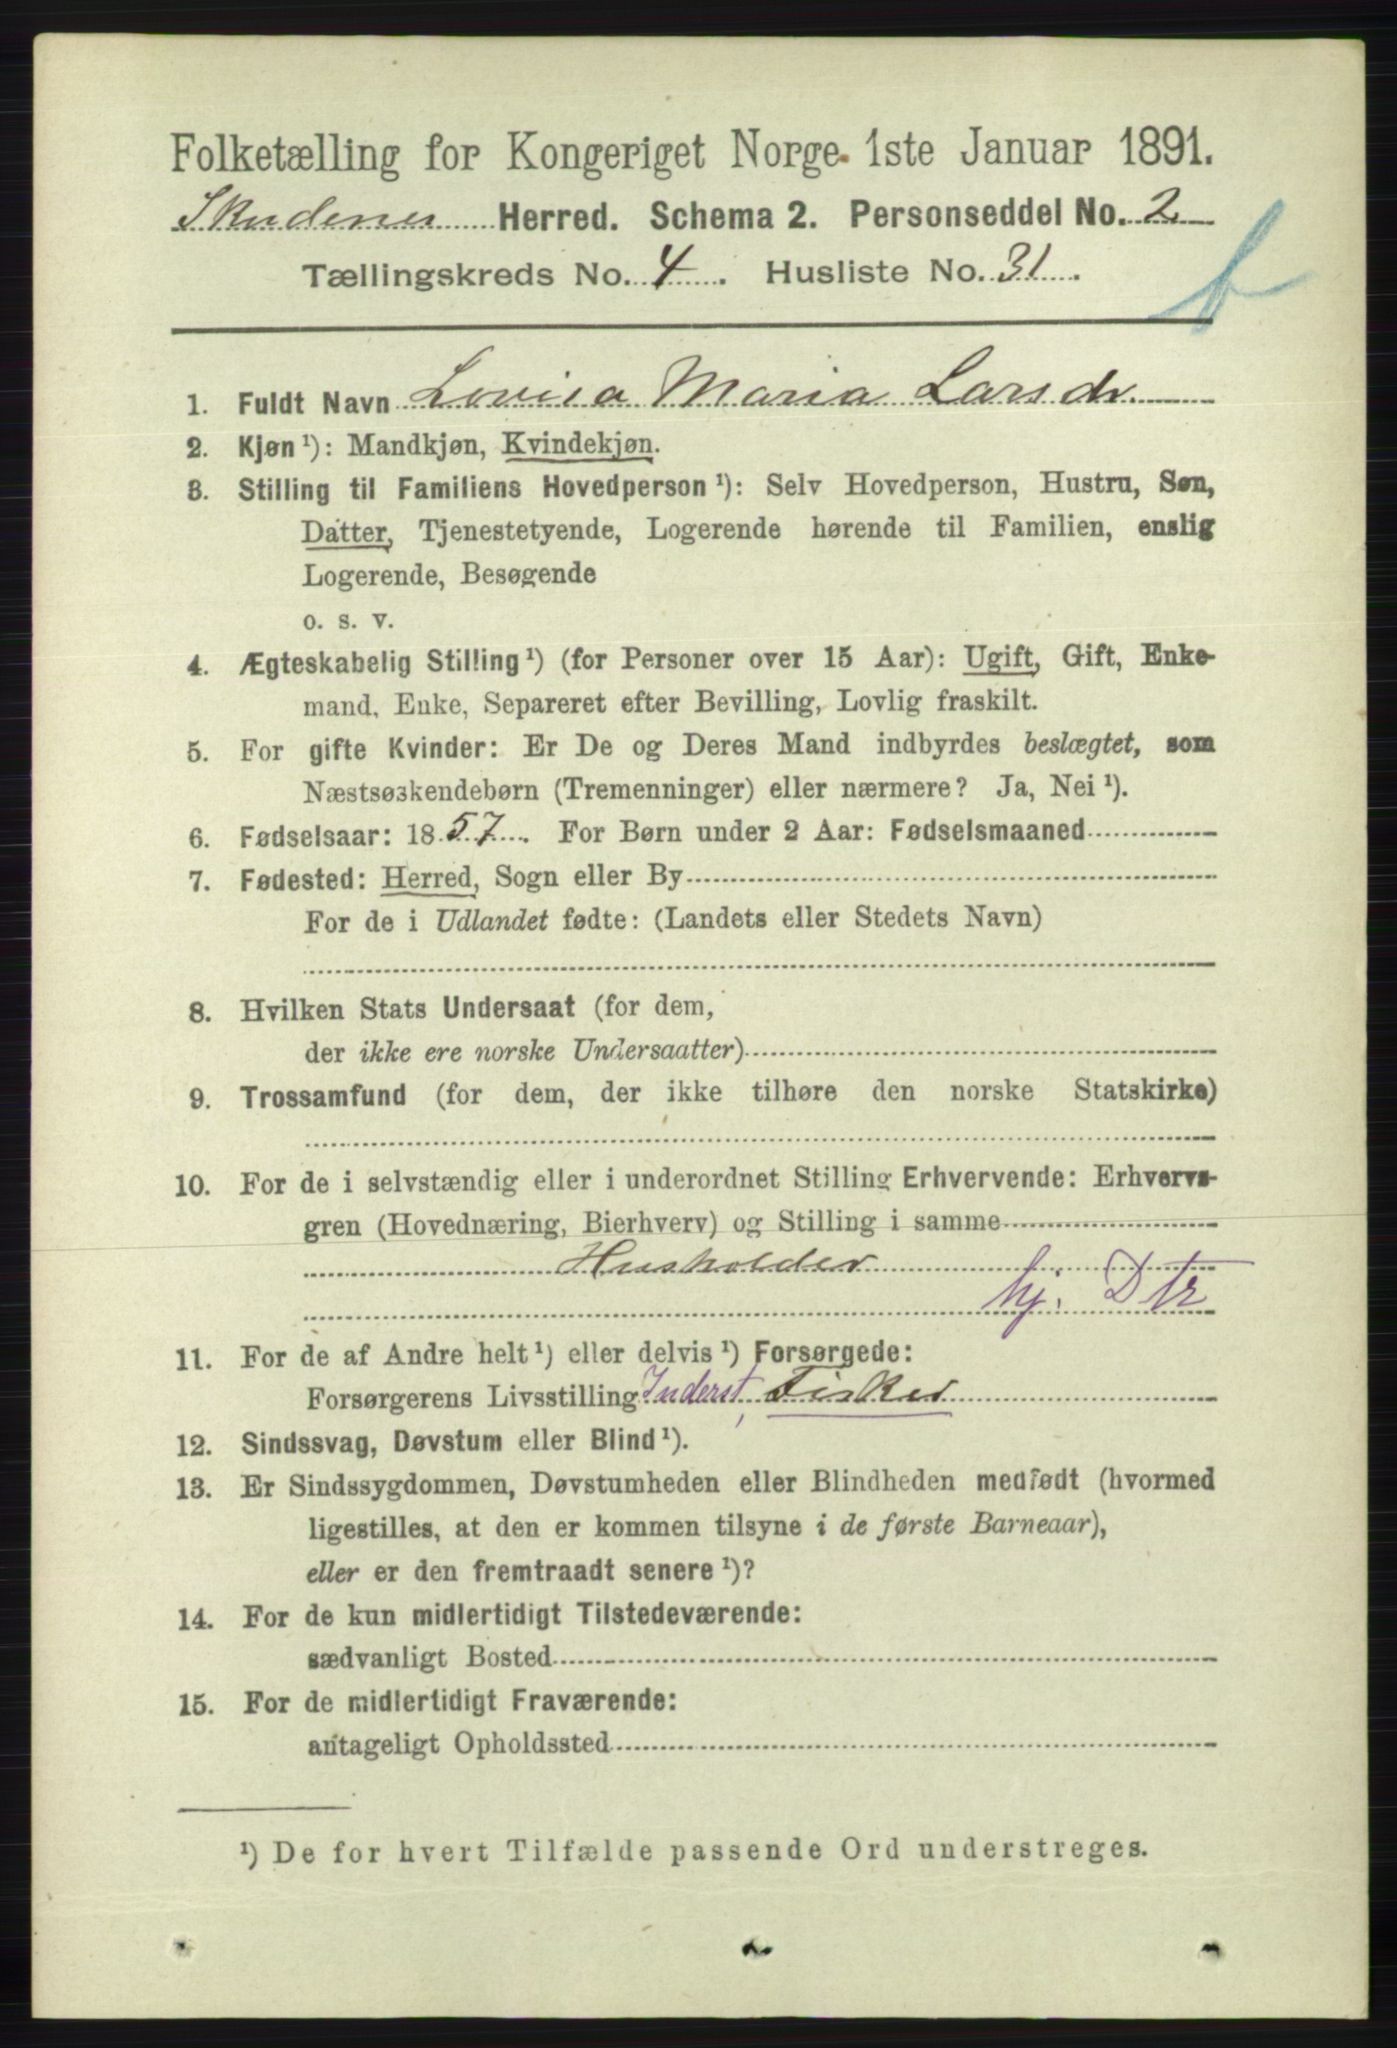 Folketælling for Kongeriget Norge 1ste Januar 1891.
Skudenes Herred. Schema 2. Personseddel No. 2
Tællingskreds No. 4. Husliste No. 31.
b
1. Fuldt Navn Lovisa Maria Larsdr.
2. Kjøn ¹): Mandkjøn, Kvindekjøn.
3. Stilling til Familiens Hovedperson ¹): Selv Hovedperson, Hustru, Søn,
Datter, Tjenestetyende, Logerende hørende til Familien, enslig
Logerende, Besøgende
o. s. v.
4. Ægteskabelig Stilling ¹) (for Personer over 15 Aar): Ugift, Gift, Enke-
mand, Enke, Separeret efter Bevilling, Lovlig fraskilt.
5. For gifte Kvinder: Er De og Deres Mand indbyrdes beslægtet, som
Næstsøskendebørn (Tremenninger) eller nærmere? Ja, Nei ¹).
6. Fødselsaar: 1857. For Børn under 2 Aar: Fødselsmaaned
7. Fødested: Herred, Sogn eller By
For de i Udlandet fødte: (Landets eller Stedets Navn)
8. Hvilken Stats Undersaat (for dem,
der ikke ere norske Undersaatter)
9. Trossamfund (for dem, der ikke tilhøre den norske Statskirke)
10. For de i selvstændig eller i underordnet Stilling Erhvervende: Erhvervs-
gren (Hovednæring, Bierhverv) og Stilling i samme
Husholder
hj. Dtr
11. For de af Andre helt ¹) eller delvis ¹) Forsørgede:
Forsørgerens Livsstilling Inderst, Fisker
12. Sindssvag, Døvstum eller Blind ¹).
13. Er Sindssygdommen, Døvstumheden eller Blindheden medfødt (hvormed
ligestilles, at den er kommen tilsyne i de første Barneaar),
eller er den fremtraadt senere ¹)?
14. For de kun midlertidigt Tilstedeværende:
sædvanligt Bosted
15. For de midlertidigt Fraværende:
antageligt Opholdssted
¹) De for hvert Tilfælde passende Ord understreges.